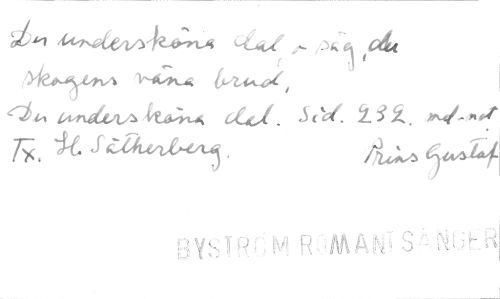 Du undersköna dal, o säg, du
skogens väna brud,
Du undersköna dal. Sid. 232. md-not
Tx. H. Sätherberg. Prins Gustaf
BYSTRÖM ROMANTSÅNGER